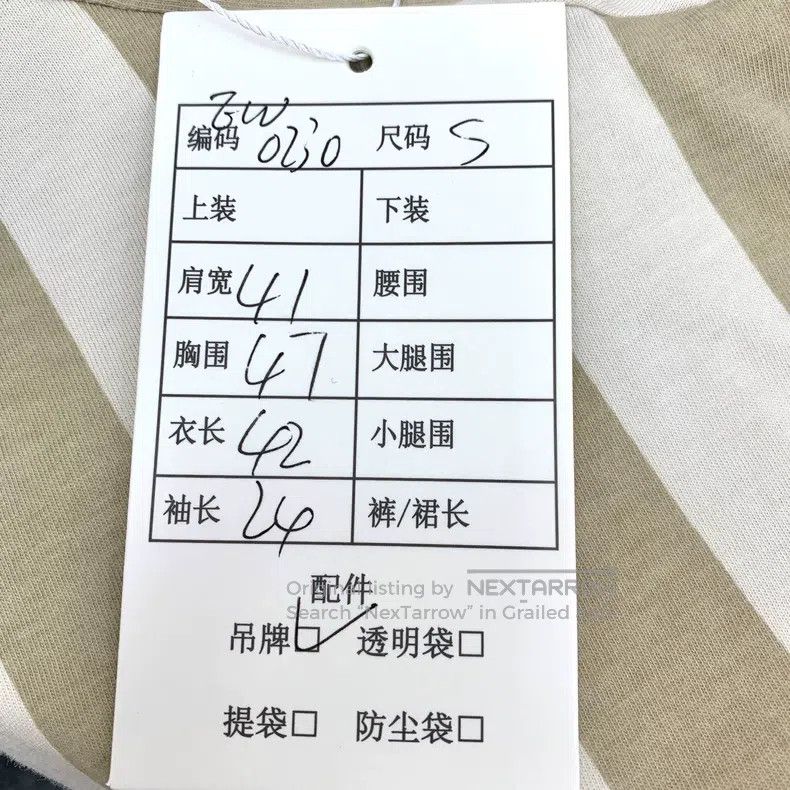 编码 ZW 0230 尺码 S
上装 下装
肩宽 41 腰围
胸围 47 大腿围
衣长 42 小腿围
袖长 24 裤/裙长
配件
Original listing by NEXTARROW
Search "NexTarrow" in Grailed
吊牌□ 透明袋□
提袋□ 防尘袋□